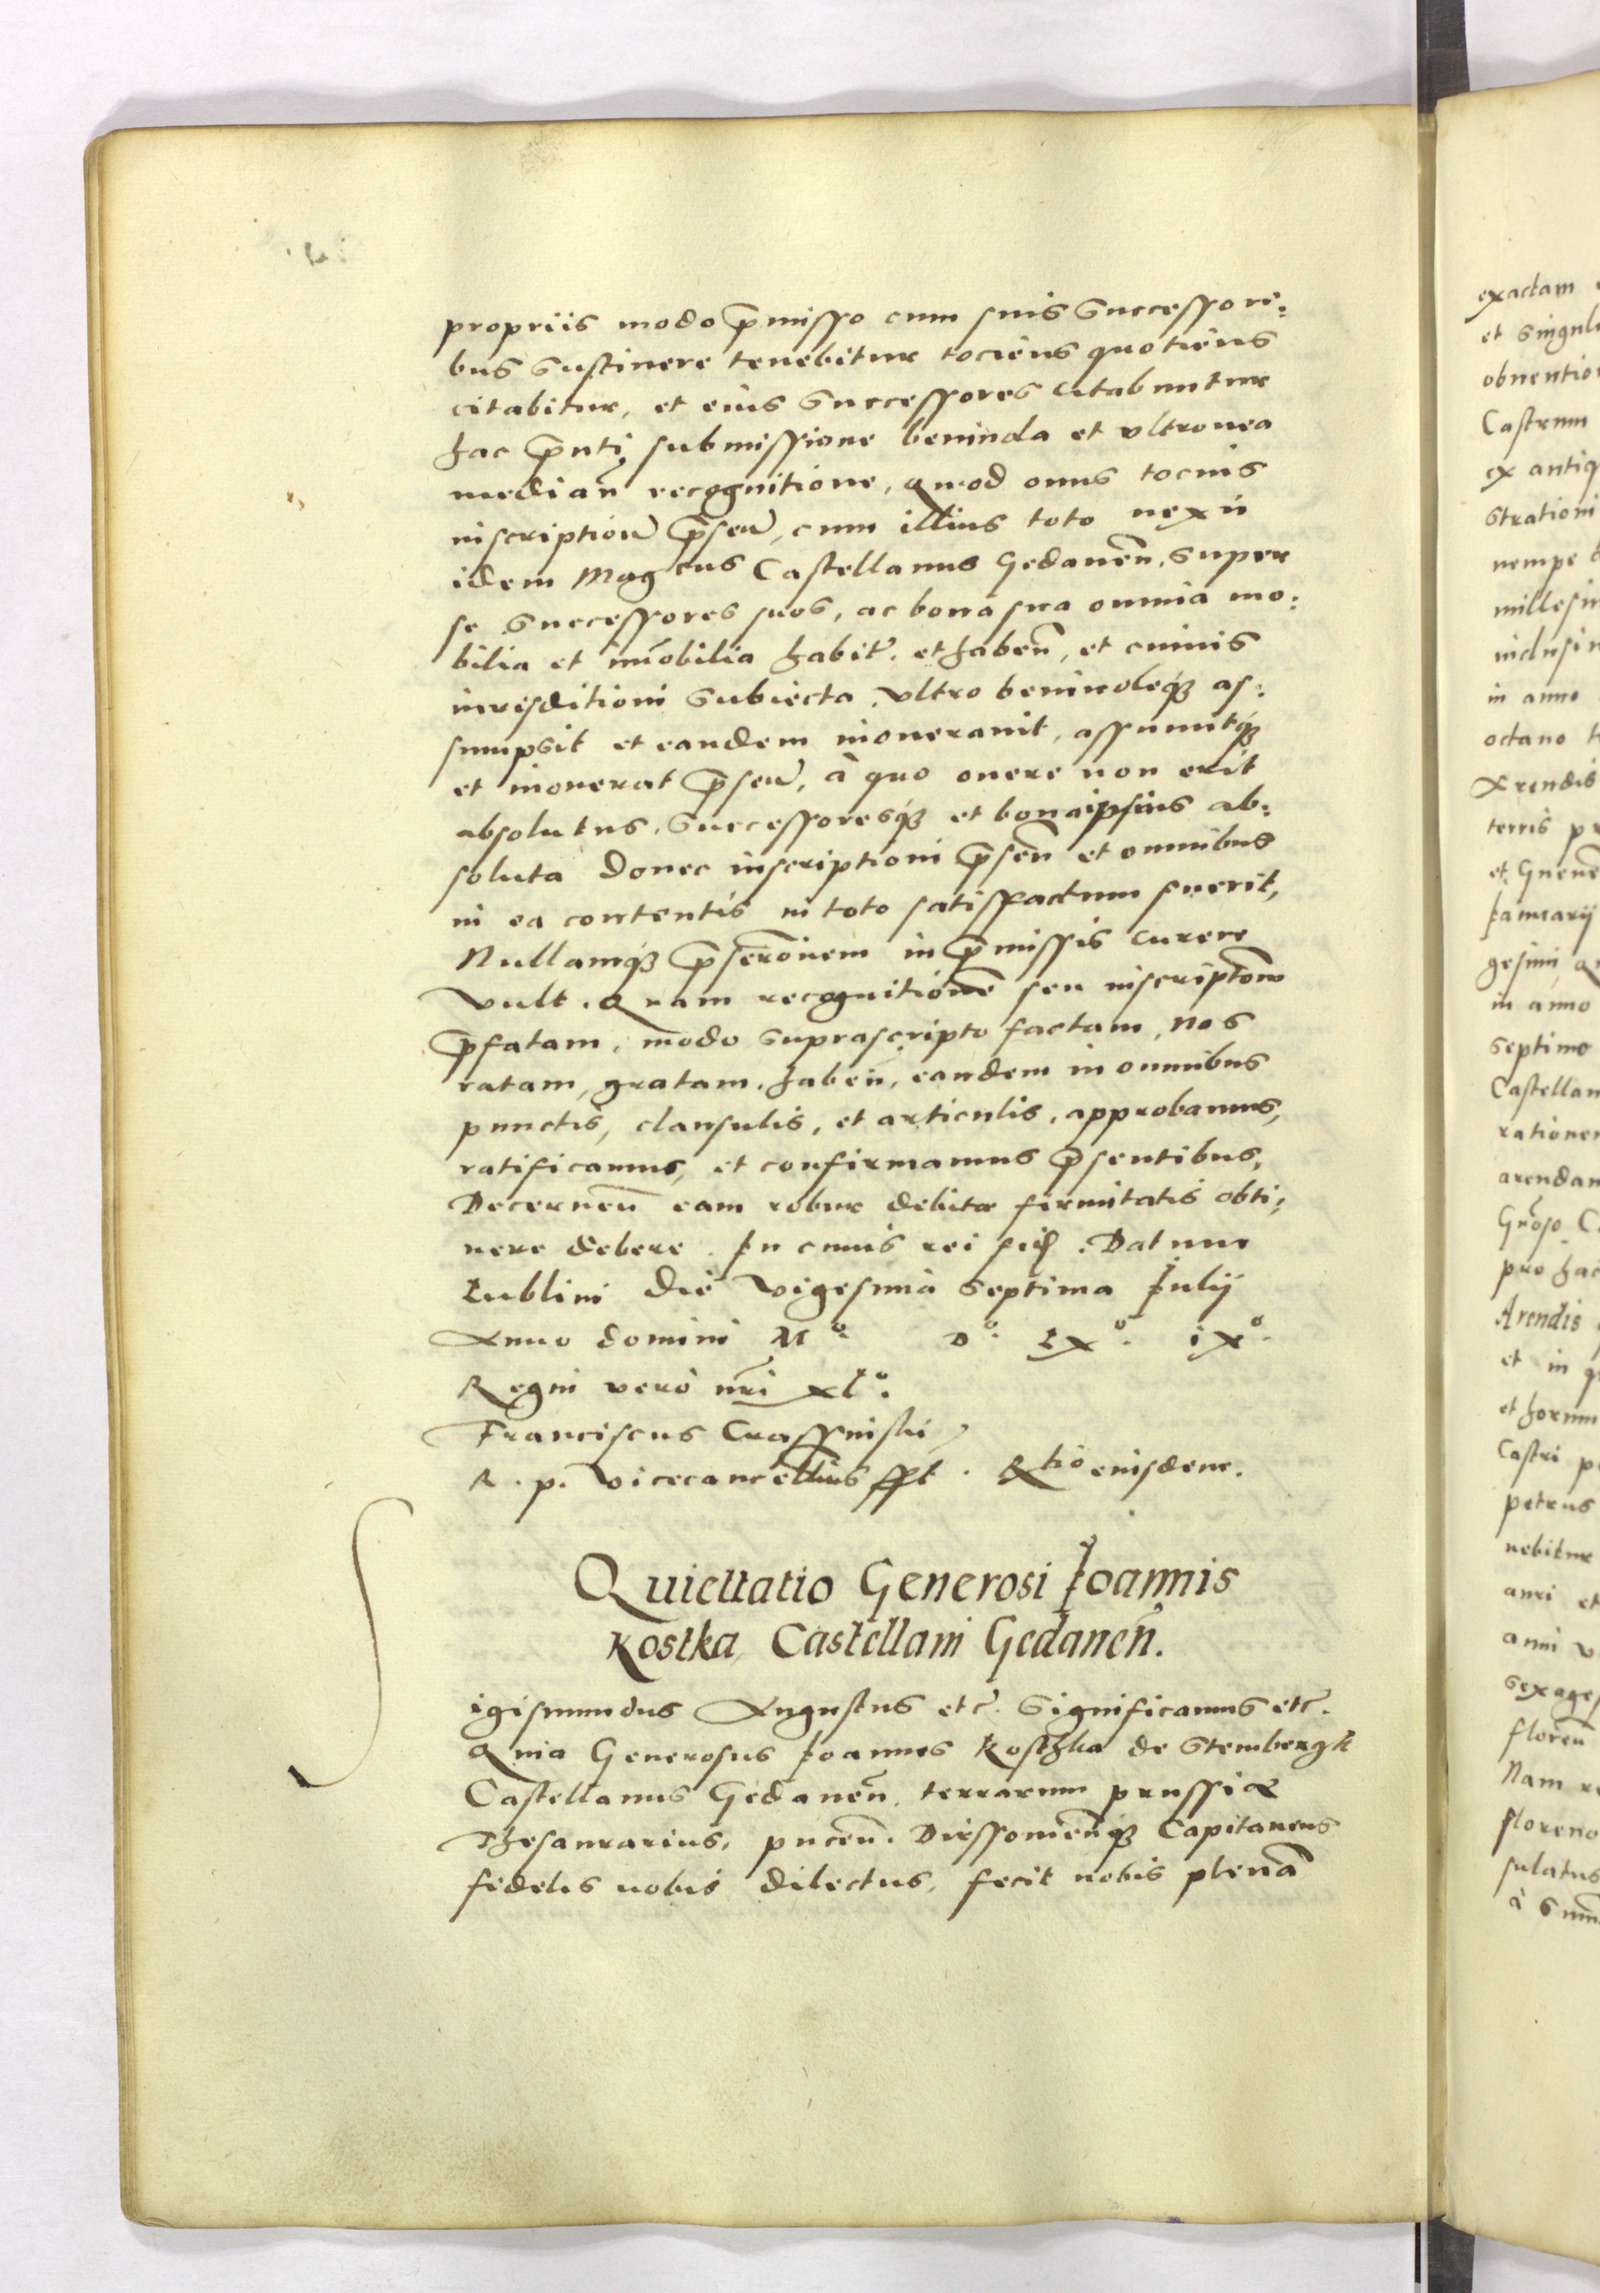 propriis modo p̄misso cum suis Successori:
bus Sustinere tenebitur tociens quotiens
citabitur, et eius Successores citabuntur
hac p̄nti submissione beniuola et vltronea
median̄ recognitione, Quod onus tocius
inscription̄ p̄sen̄, cum illius toto nexu
idem Mag cus Castellanus Gedanen̄. Super
se Successores suos, ac bona sua omnia mo:
bilia et im̄obilia habit. et haben̄, et cuiuis
iurisditioni Subiecta vltro beniuoleq3 as:
sumpsit et eandem inonerauit, assumitq3
et inonerat p̄sen̄, à quo onere non erit
absolutus, Successoresq3 et bona ipsius ab:
soluta donec inscriptioni p̄sen̄ et omnibus
in ea contentis in toto satisfactum fuerit,
Nullamq3 p̄scr̄onem in p̄missis currere
vult. Quam recognitione seu inscript̄om
p̄fatam, modo suprascripto factam, nos
ratam, gratam, haben̄, eandem in omnibus
punctis, clausulis, et articulis, approbamus,
ratificamus, et confirmamus p̄sentibus,
Decernen̄ eam robur debitæ firmitatis obti:
nere debere. In cuius rei fid. Datum
Lublini die vigesima Septima Julij
Anno domini Mº. Dº. LXº. iXº.
Regni verò nr̄i xlº.
Franciscus Crassinski
R. p. vicecancellarius sspt. Rtio eiusdem.
Quiettatio Generosi Joannis
Kostka, Castellani Gedanen̄.
Sigismundus Augustus etc. Significamus etc.
Quia Generosus Joannes Kosthka de Stembergk
Castellanus Gedanen̄. terrarum prussiæ
Thesaurarius, pucen̄. Dirssouien̄q3 Capitaneus
fidelis nobis dilectus, fecit nobis plenā
exactam
et Singul
obuentio
Castrum
ex antiq
Strationi
nempe
millesi
inclusi
in anno
octauo
Arendis
terris
Januarij
gesimi
in anno
septimo
Castellan
rationem
arendam
pro hac
Arendis
et in
et horum
Castri
petrus
nebitur
auri et
anni
sexages
floren̄
Nam
floreno
sulatus